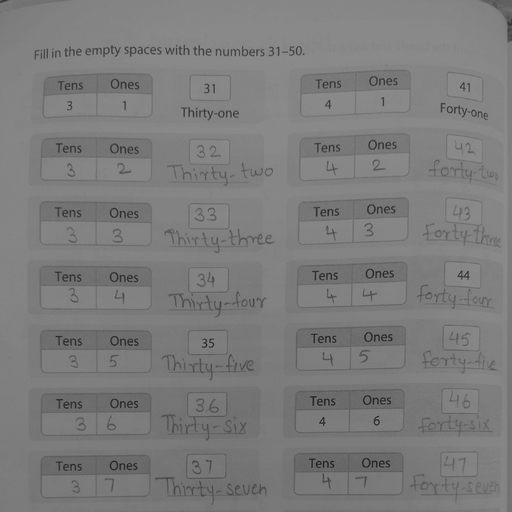 Fill in the empty spaces with the numbers 31–50.
Tens Ones 31 Tens Ones 41
3 1 Thirty-one 4 1 Forty-one
Tens Ones 32 Tens Ones 42
3 2 Thirty-two 4 2 forty-two
Tens Ones 33 Tens Ones 43
3 3 Thirty-three 4 3 Forty-three
Tens Ones 34 Tens Ones 44
3 4 Thirty-four 4 4 forty-four
Tens Ones 35 Tens Ones 45
3 5 Thirty-five 4 5 forty-five
Tens Ones 36 Tens Ones 46
3 6 Thirty-six 4 6 forty-six
Tens Ones 37 Tens Ones 47
3 7 Thirty-seven 4 7 forty-seven